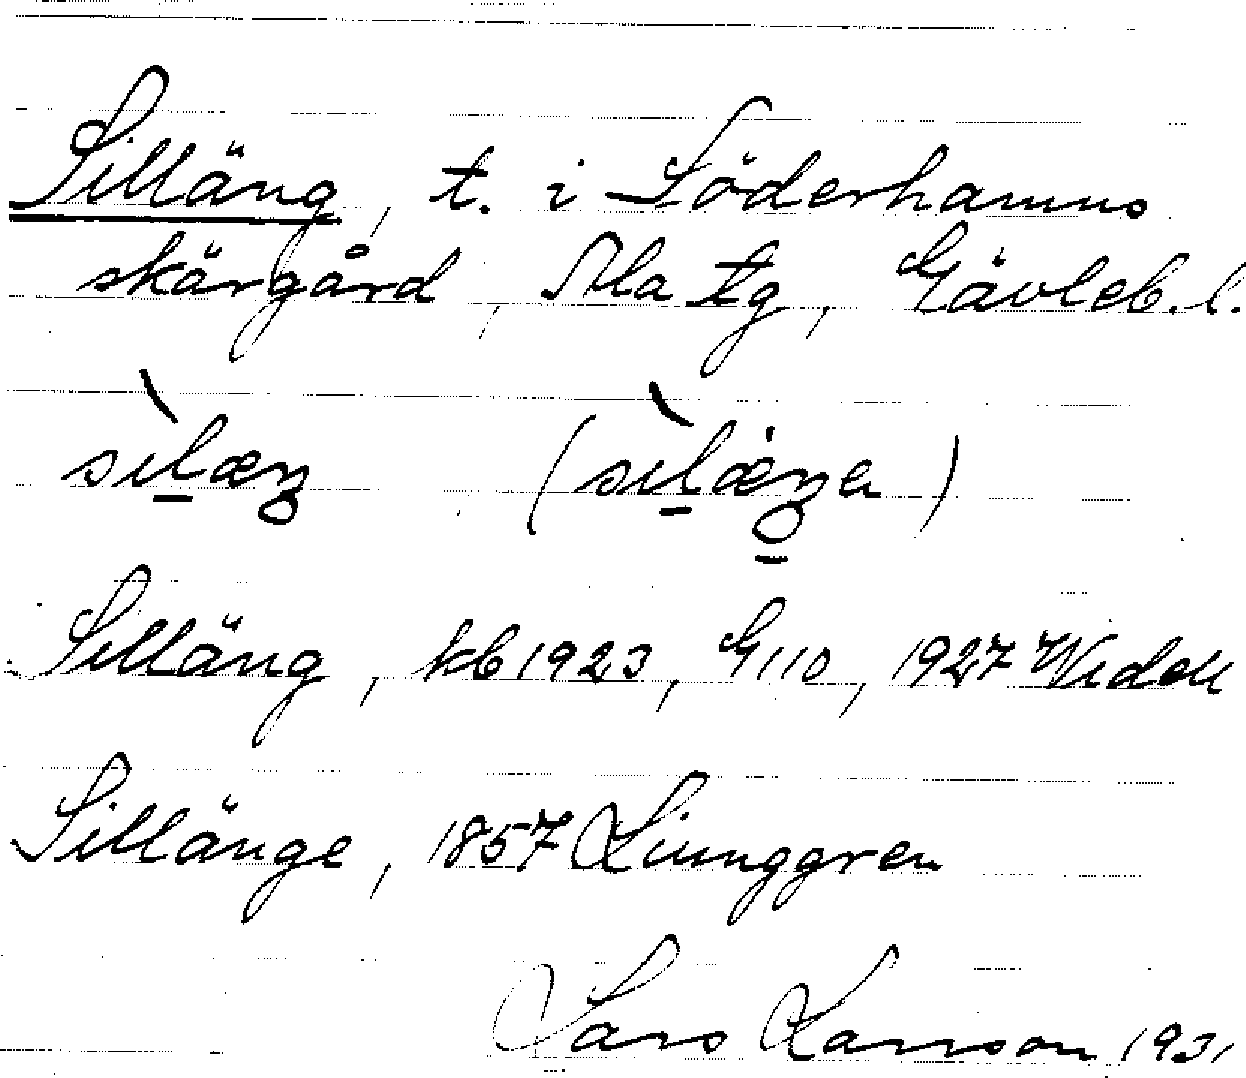 Silläng, t. i Söderhamns
skärgård, Ala tg, Gävleb. l.
sìlæŋ (sìlæŋa)
Silläng, kb 1923, G 110, 1927 Widell
Sillänge, 1857 Ljunggren
Lars Larsson 1931